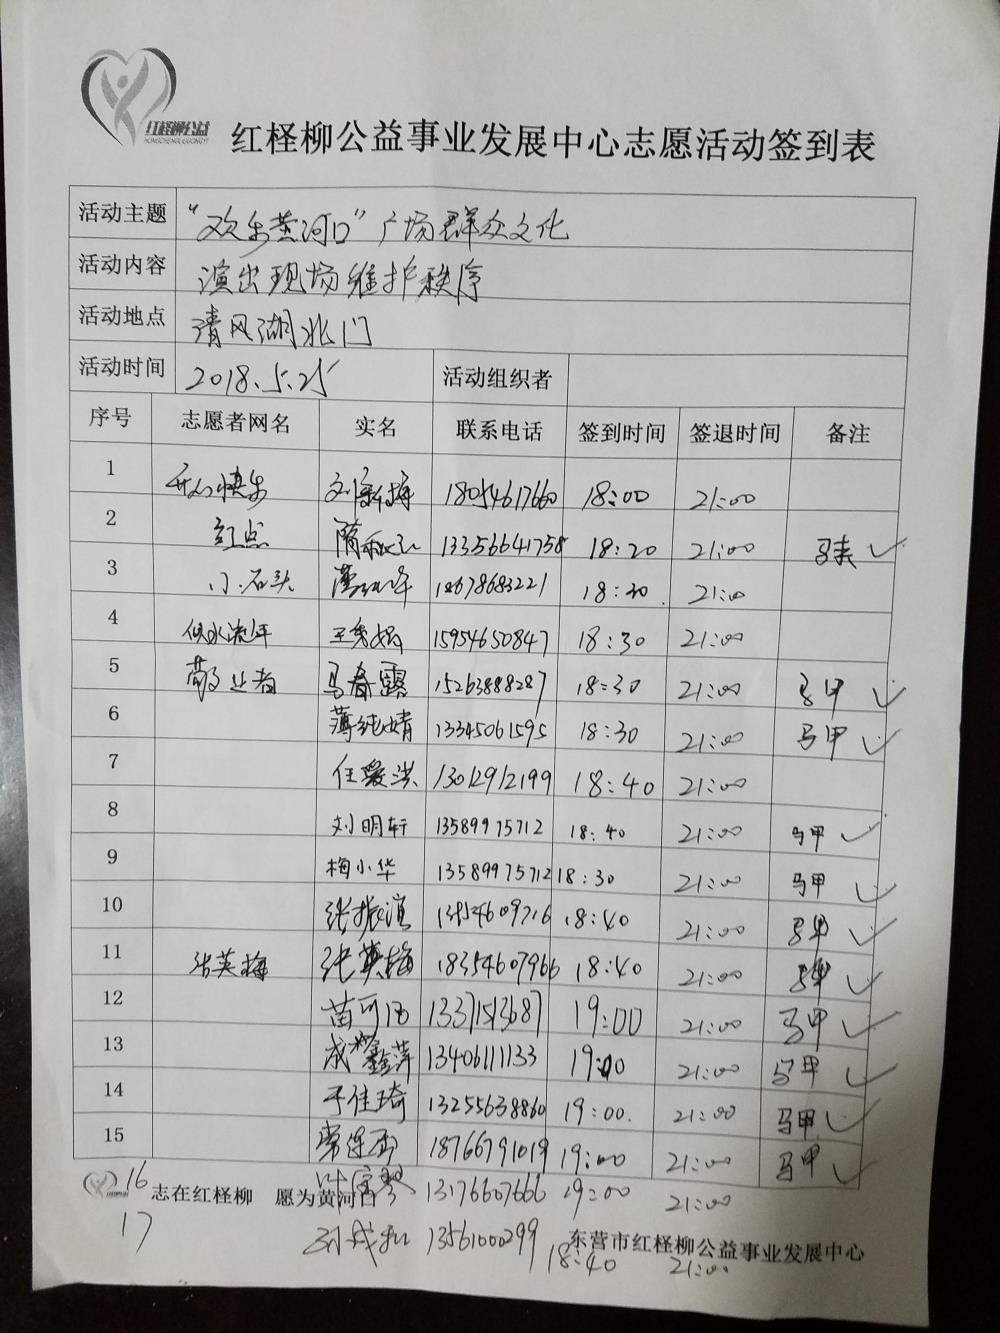 红柽柳公益
红柽柳公益事业发展中心志愿活动签到表
活动主题 “欢乐黄河口”广场群众文化
活动内容 演出现场维护秩序
活动地点 清风湖北门
活动时间 2018.5.25 活动组织者
序号 志愿者网名 实名 联系电话 签到时间 签退时间 备注
1 开心快乐 刘新梅 18054617660 18:00 21:00
2 红点 隋 13356641758 18:20 21:00 马夹 ✓
3 小石头 18678683221 18:30 21:00
4 似水流年 王秀娟 15954650847 18:30 21:00
5 敬业者 马春露 15263888287 18:30 21:00 马甲 ✓
6 薄纯婧 13345061595 18:30 21:00 马甲 ✓
7 任爱洪 13012912199 18:40 21:00
8 刘明轩 13589975712 18:40 21:00 马甲 ✓
9 梅小华 13589975712 18:30 21:00 马甲 ✓
10 张振滨 18:40 21:00 马甲 ✓
11 张英梅 张英梅 18354607966 18:40 21:00 马甲 ✓
12 苗可 13371513687 19:00 21:00 马甲 ✓
13 成鑫萍 13406111133 19:00 21:00 马甲 ✓
14 于佳琦 13255638860 19:00. 21:00 马甲 ✓
15 常 18766791019 19:00 21:00 马甲 ✓
16 13176607666 19:00 21:00
志在红柽柳 愿为黄河口
17 孙成 13561000299 18:40 21:00
东营市红柽柳公益事业发展中心